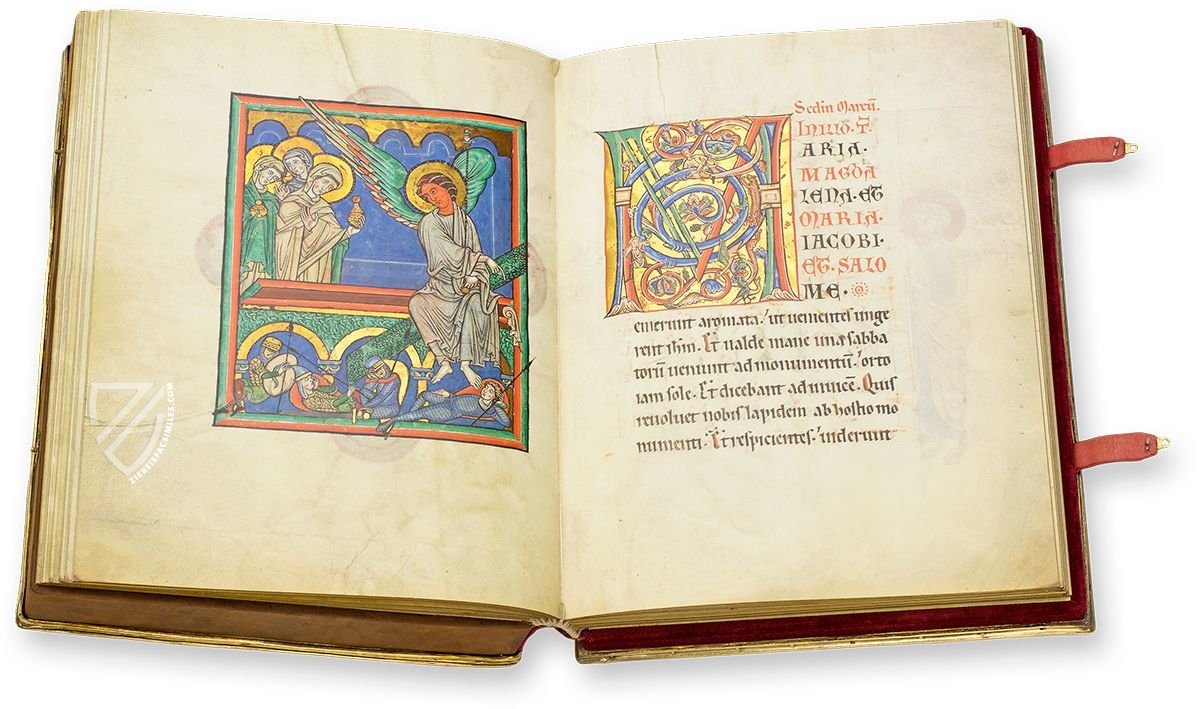 ZIEREIS FACSIMILES.COM
Sc̄dm Marcū.
IN ILLO·T̄·
M ARIA·
MAGDA
LENA·ET
MARIA·
IACOBI·
ET·SALO
ME·
emerunt aromata· ut uenientes unge
rent ihm̄. Et ualde mane una sabba
torū ueniunt ad monumentū· orto
iam sole. Et dicebant ad inuicē. Quis
reuoluet nobis lapidem ab hostio mo
numenti. Et respicientes· uiderunt